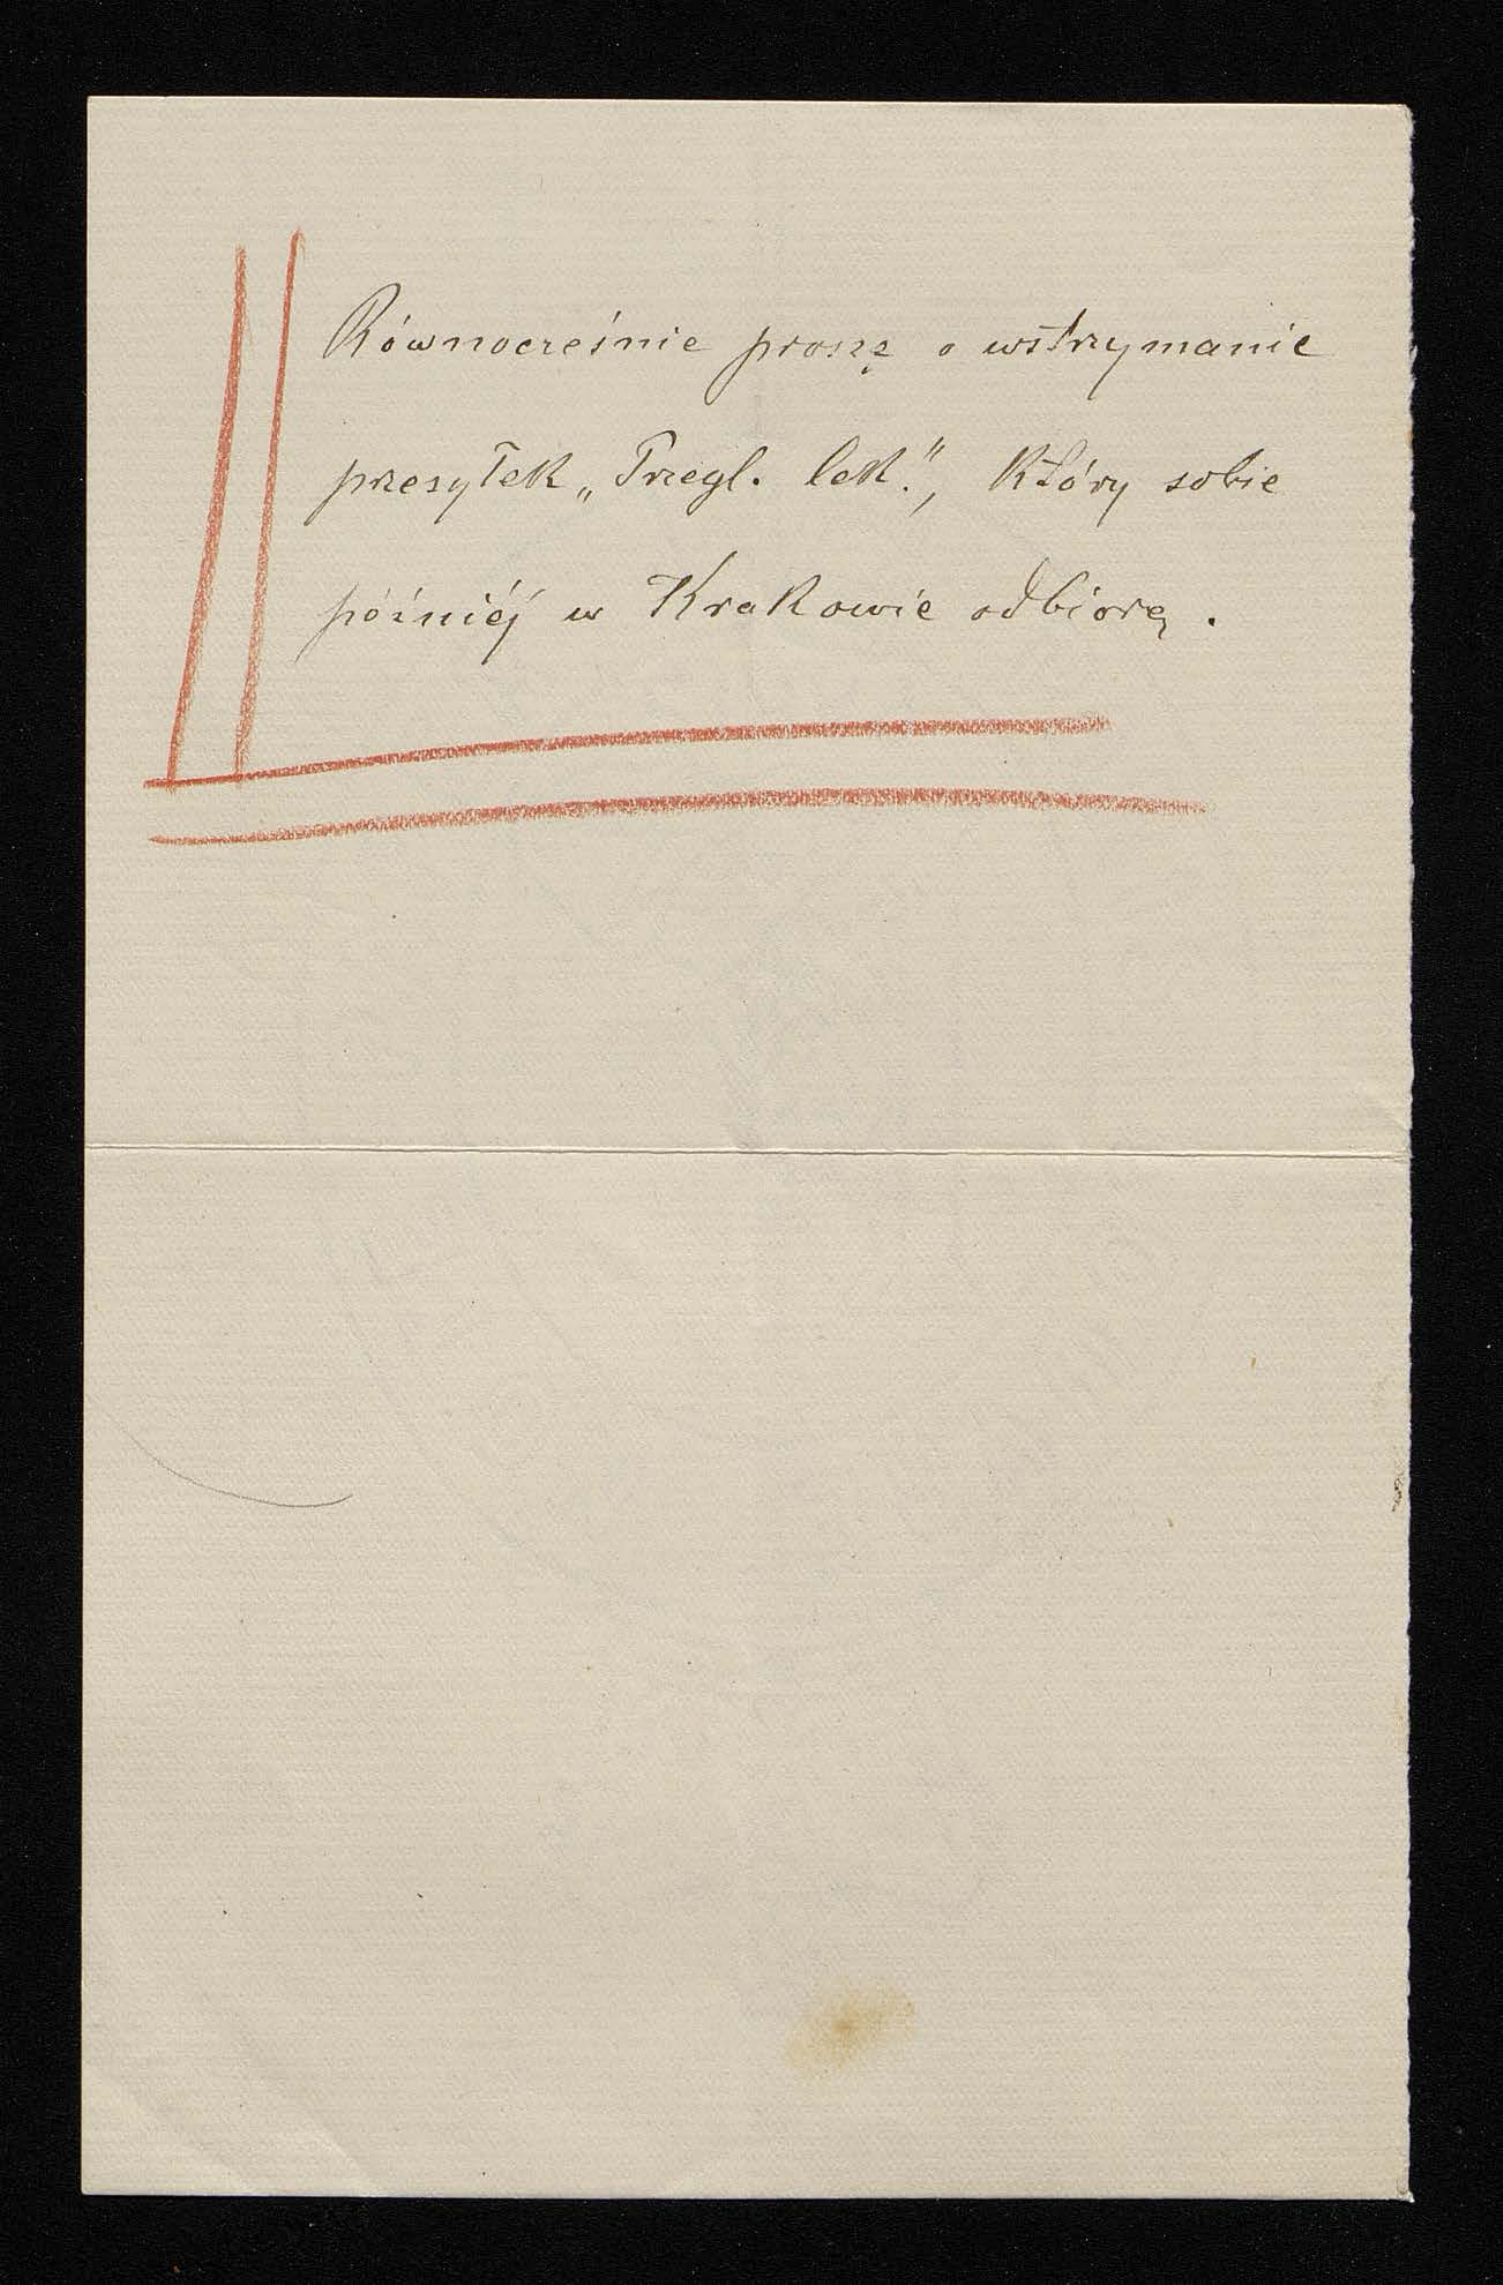 Równocześnie proszę o wstrzymanie
przesyłek „Przegl. lek.", który sobie
późniéj w Krakowie odbiorę.